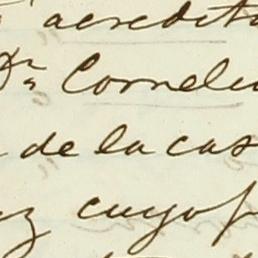 acredita
Dn Corneli
de la cas
z cuyo